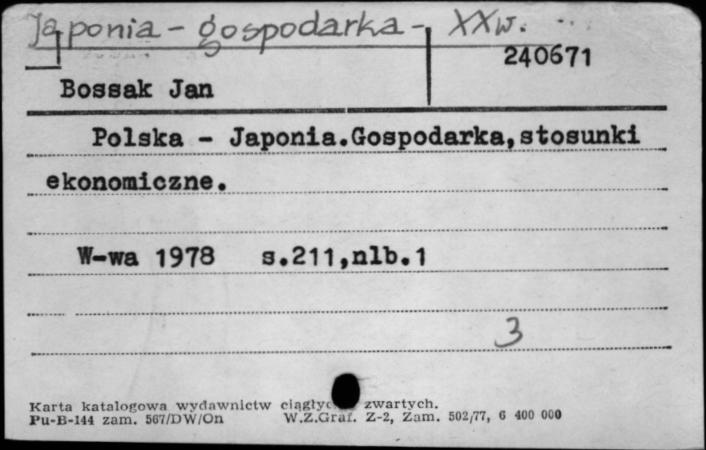 Japonia - gospodarka - XXw.
240671
Bossak Jan
Polska - Japonia.Gospodarka,stosunki
ekonomiczne.
W-wa 1978 s.211,nlb.1
3
Karta katalogowa wydawnictw zwartych.
Pu-B-144 zam. 567/DW/On W.Z.Graf. Z-2, Zam. 502/77, 6 400 000